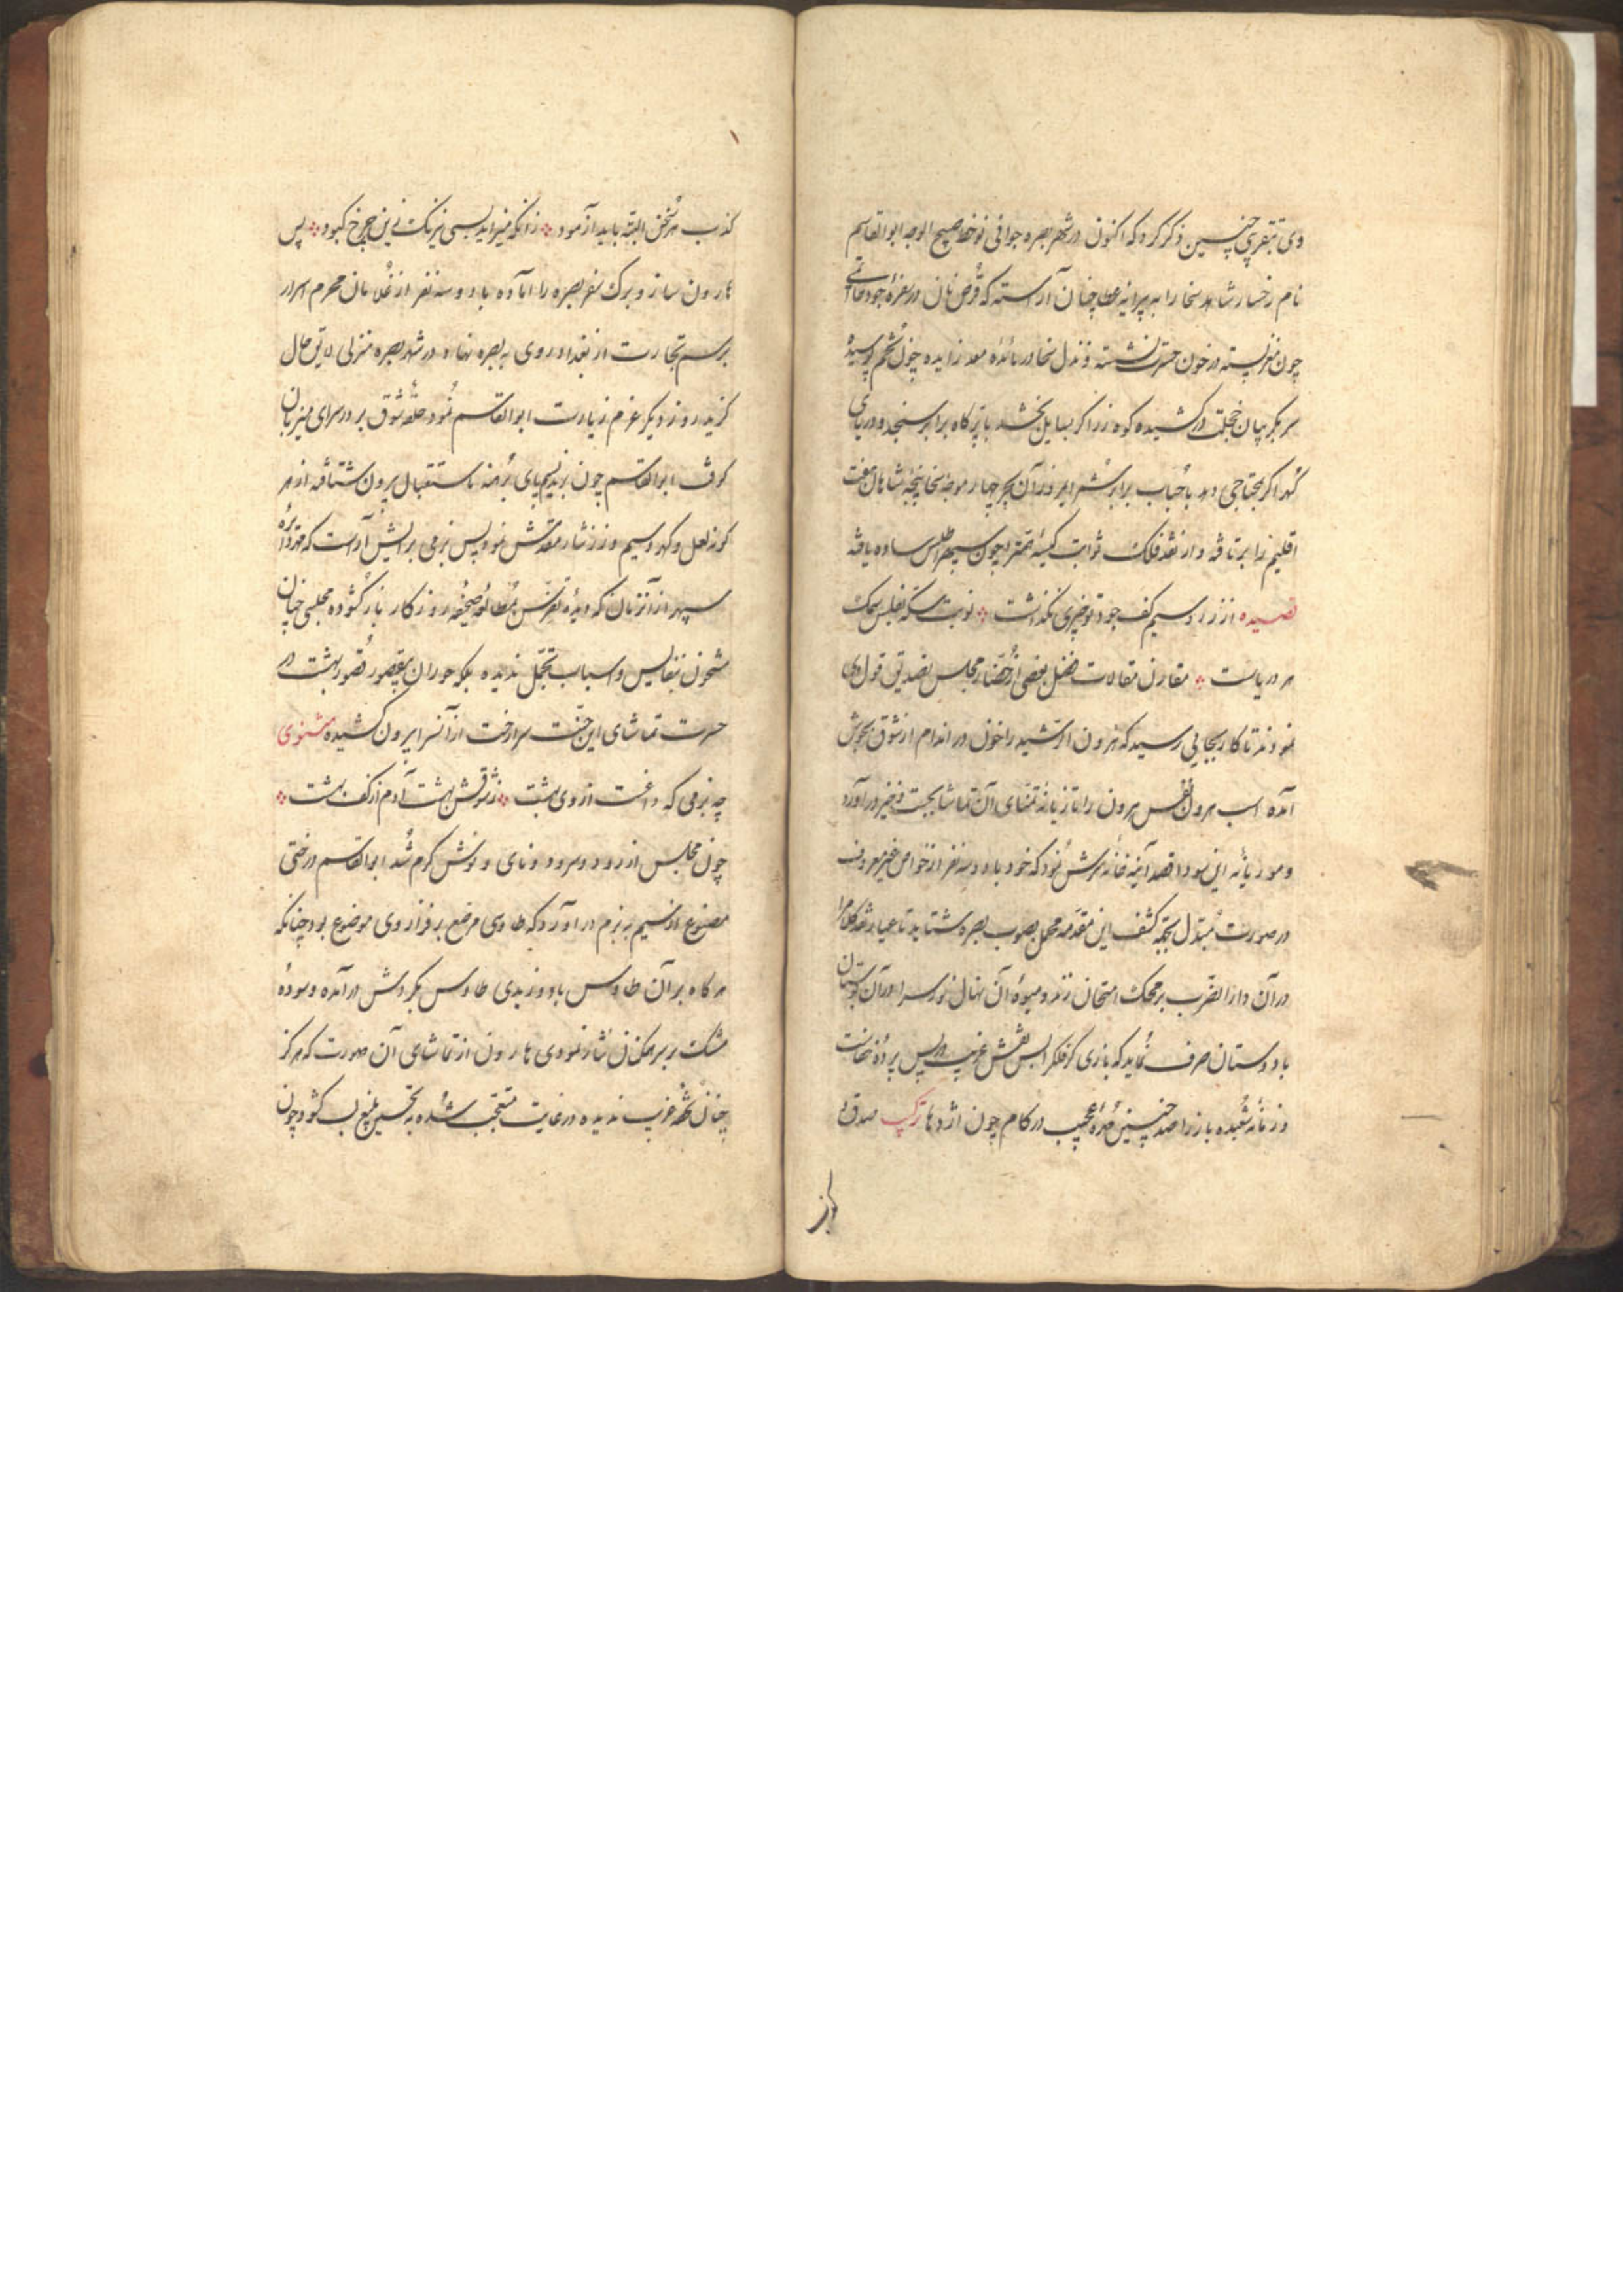 وی بتقریبی چنین ذکر کرد که اکنون در شهر بصره جوانی نوخط صبیح الوجه ابوالقاسم
نام رخسار شاهد سخا را به پیرایه عطا چنان آراسته که قرص نان در سفرهٔ جود حاتمی
چون پسته در خون حسرت نشسته و بذل سخا در مائدهٔ معد زایده چون پوسیدهٔ
سر بگریبان خجلت در کشیده کوه زر اگر بسایل بخشد با پر کاه برابر سنجد و دریای
گهر اگر بمحتاجی دهد با حباب برابر شمرد امروز از آن بحر چهار موجهٔ سخا پنجهٔ شاهان هفت
اقلیم را برتافته و از نقد فلک ثوابت کیسه چون سپهر اطلس ساده یافته
قصیده از زر و سیم کف جود تو چیزی نگذاشت نوبت سکه بفلس سمک
هر دریاست مقارن مقالات فضل بعضی از حضار مجلس تصدیق قول وی
نمودند تا کار بجایی رسید که هرون الرشید را خون در اندام از شوق بجوش
آمده اسب هرون نفس هرون را تازیانهٔ تمنای آن تماشا بجست و خیز درآورد
و موریانهٔ این سودا قصد آینه خانه سرش نمود که خود با دو سه نفر از خواص غیر معروف
در صورت مبدل بجهة کشف این مقدمه محمل بصوب بصره شتابد تا عیار نقد کلام را
در آن دار الضرب بر محک امتحان زند و میوهٔ آن نهال نورس را در آن بوستان
با دوستان صرف نماید که بازی گر فلک را بس نقش غریب در پس پردهٔ نهانست
و زمانهٔ شعبده باز را صد چنین مهرهٔ عجیب در کام چون اژدها ترکیب صدق و
کذب هر سخن البته باید آزمود زانکه میزاید بسی نیرنگ زین چرخ کبود پس
هارون ساز و برک سفر بصره را آماده با دو سه نفر از غلامان محرم اسرار
برسم تجارت از بغداد روی به بصره نهاد و در شهر بصره منزلی لایق حال
گزید روز دیگر عزم زیارت ابوالقاسم نمود حلقهٔ شوق بر در سرای میزبان
کوفت ابوالقاسم چون نسیم پای برهنه باستقبال بیرون شتافته از هر
گونه لعل و گهر و سیم و زر نثار مقدمش نمود پس بزمی برایش آراست که
سپهر از آن زمان که دیدهٔ تفرس بمطالعهٔ صحیفهٔ روزگار باز گشوده مجلسی چنان
مشحون بنفایس و اسباب تجمل ندیده بلکه حوران بیقصور قصور بهشت در
حسرت تماشای این جنت سرا رخت از آن سرا بیرون کشیده مثنوی
چه بزمی که داغست ازوی بهشت ز شوقش بهشت آدم از کف بهشت
چون مجلس از رود و سرود و نای و نوش گرم شد ابوالقاسم درختی
مصنوع از سیم به بزم درآورد که طاوسی مرصع بر فراز وی موضوع بود چنانکه
هرگاه بر آن طاوس باد وزیدی طاوس بگردش درآمده و سودهٔ
مشک بر سر همگنان نثار نمودی هارون از تماشای آن صورت که هرگز
چنان تحفه غریب ندیده در غایت متعجب شده به تحسین بلیغ لب گشود چون